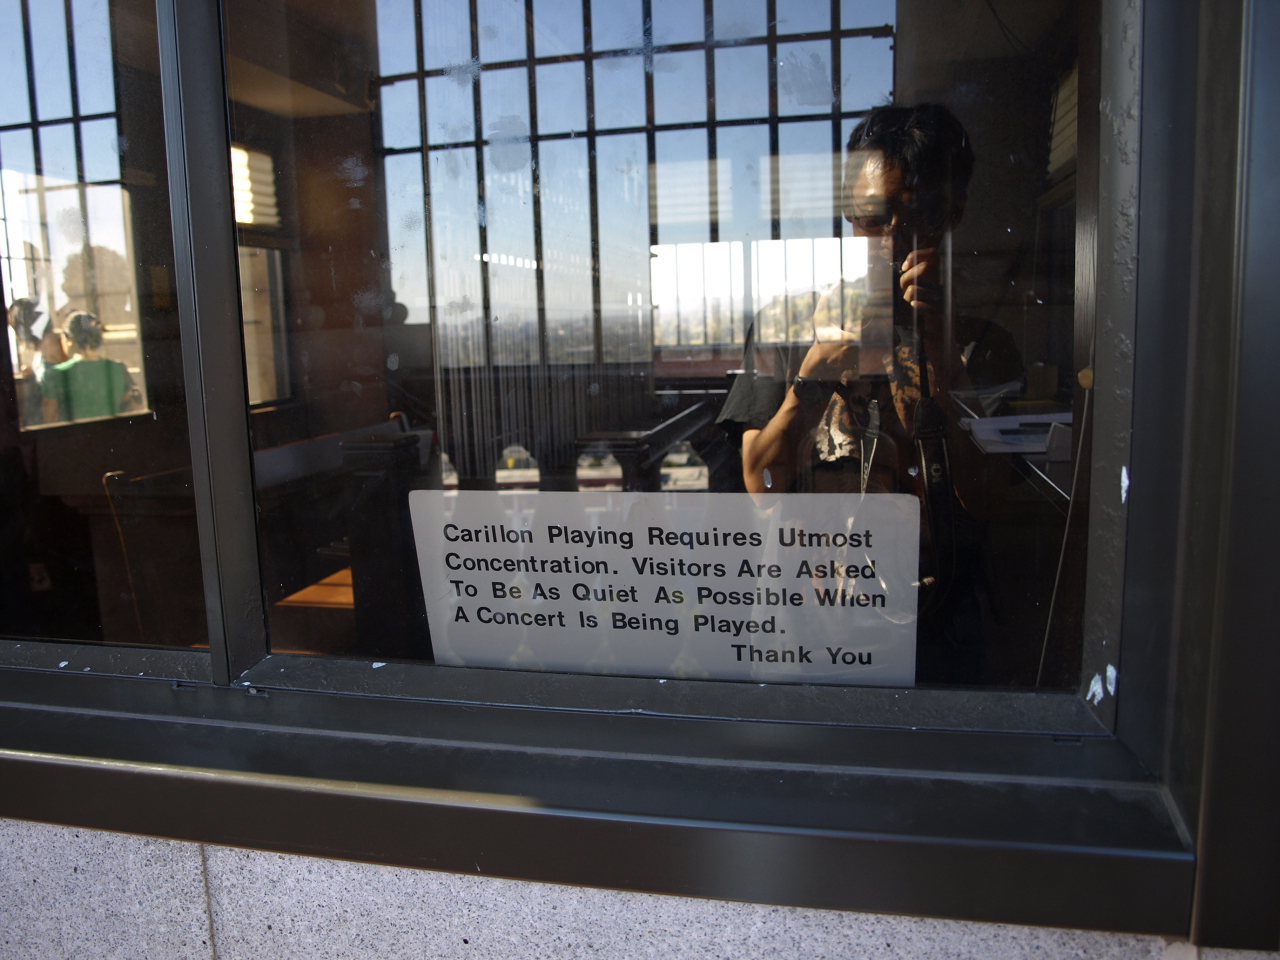 Carillon Playing Requires Utmost
Concentration. Visitors Are Asked
To Be As Quiet As Possible When
A Concert Is Being Played.
Thank You